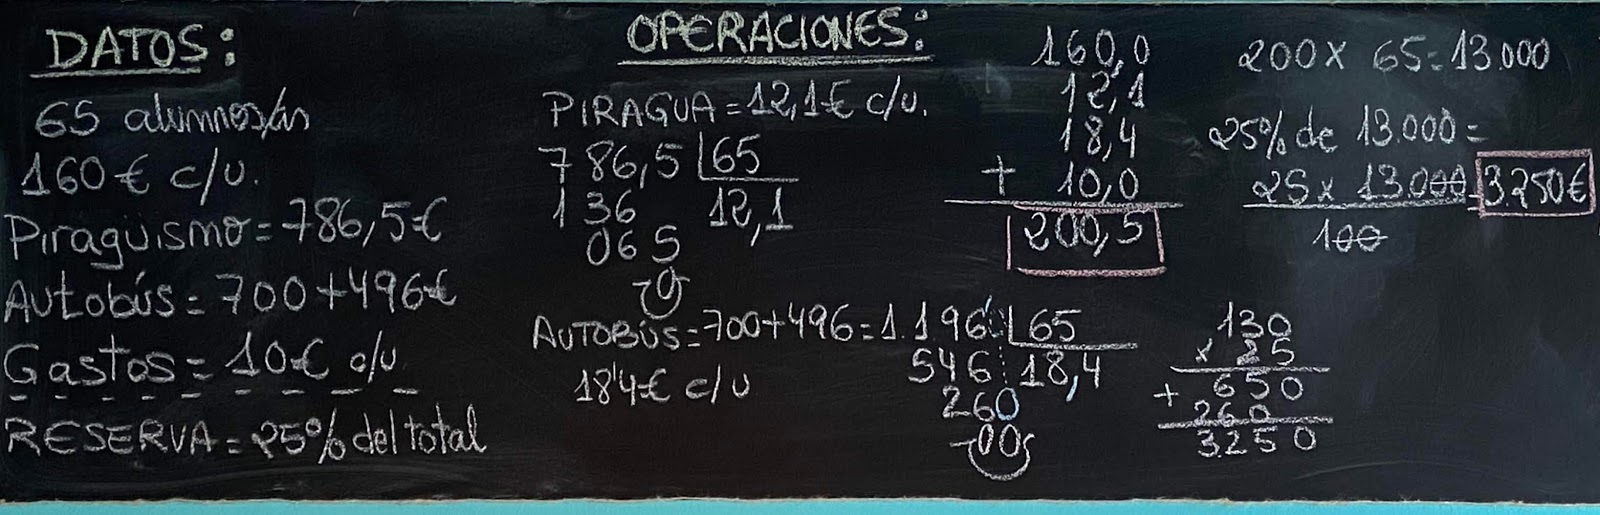 DATOS:
65 alumnos/as
160€ c/u.
Piragüismo=786,5€
Autobús=700+496€
Gastos=10€ c/u
RESERVA=25% del total
OPERACIONES:
PIRAGUA=12,1€ c/u.
786,5 65
136 12,1
065
0
AUTOBÚS=700+496=1.196 65
18'4€ c/u
546 18,4
260
00
160,0
+ 12,1
18,4
+ 10,0
200,5
200x 65=13.000
25% de 13.000=
25 x 13.000=3.250€
100
130
x 25
+ 650
260
3250